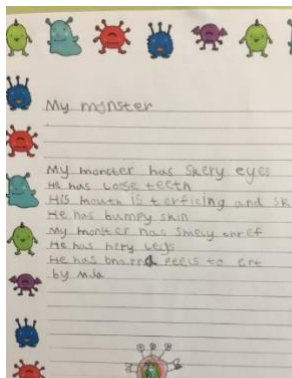 My monster
My monster has skery eyes
He has loose teeth
His mouth is terficing and sk
He has bumpy skin
My monster has smely
He has hery legs
He has to
by